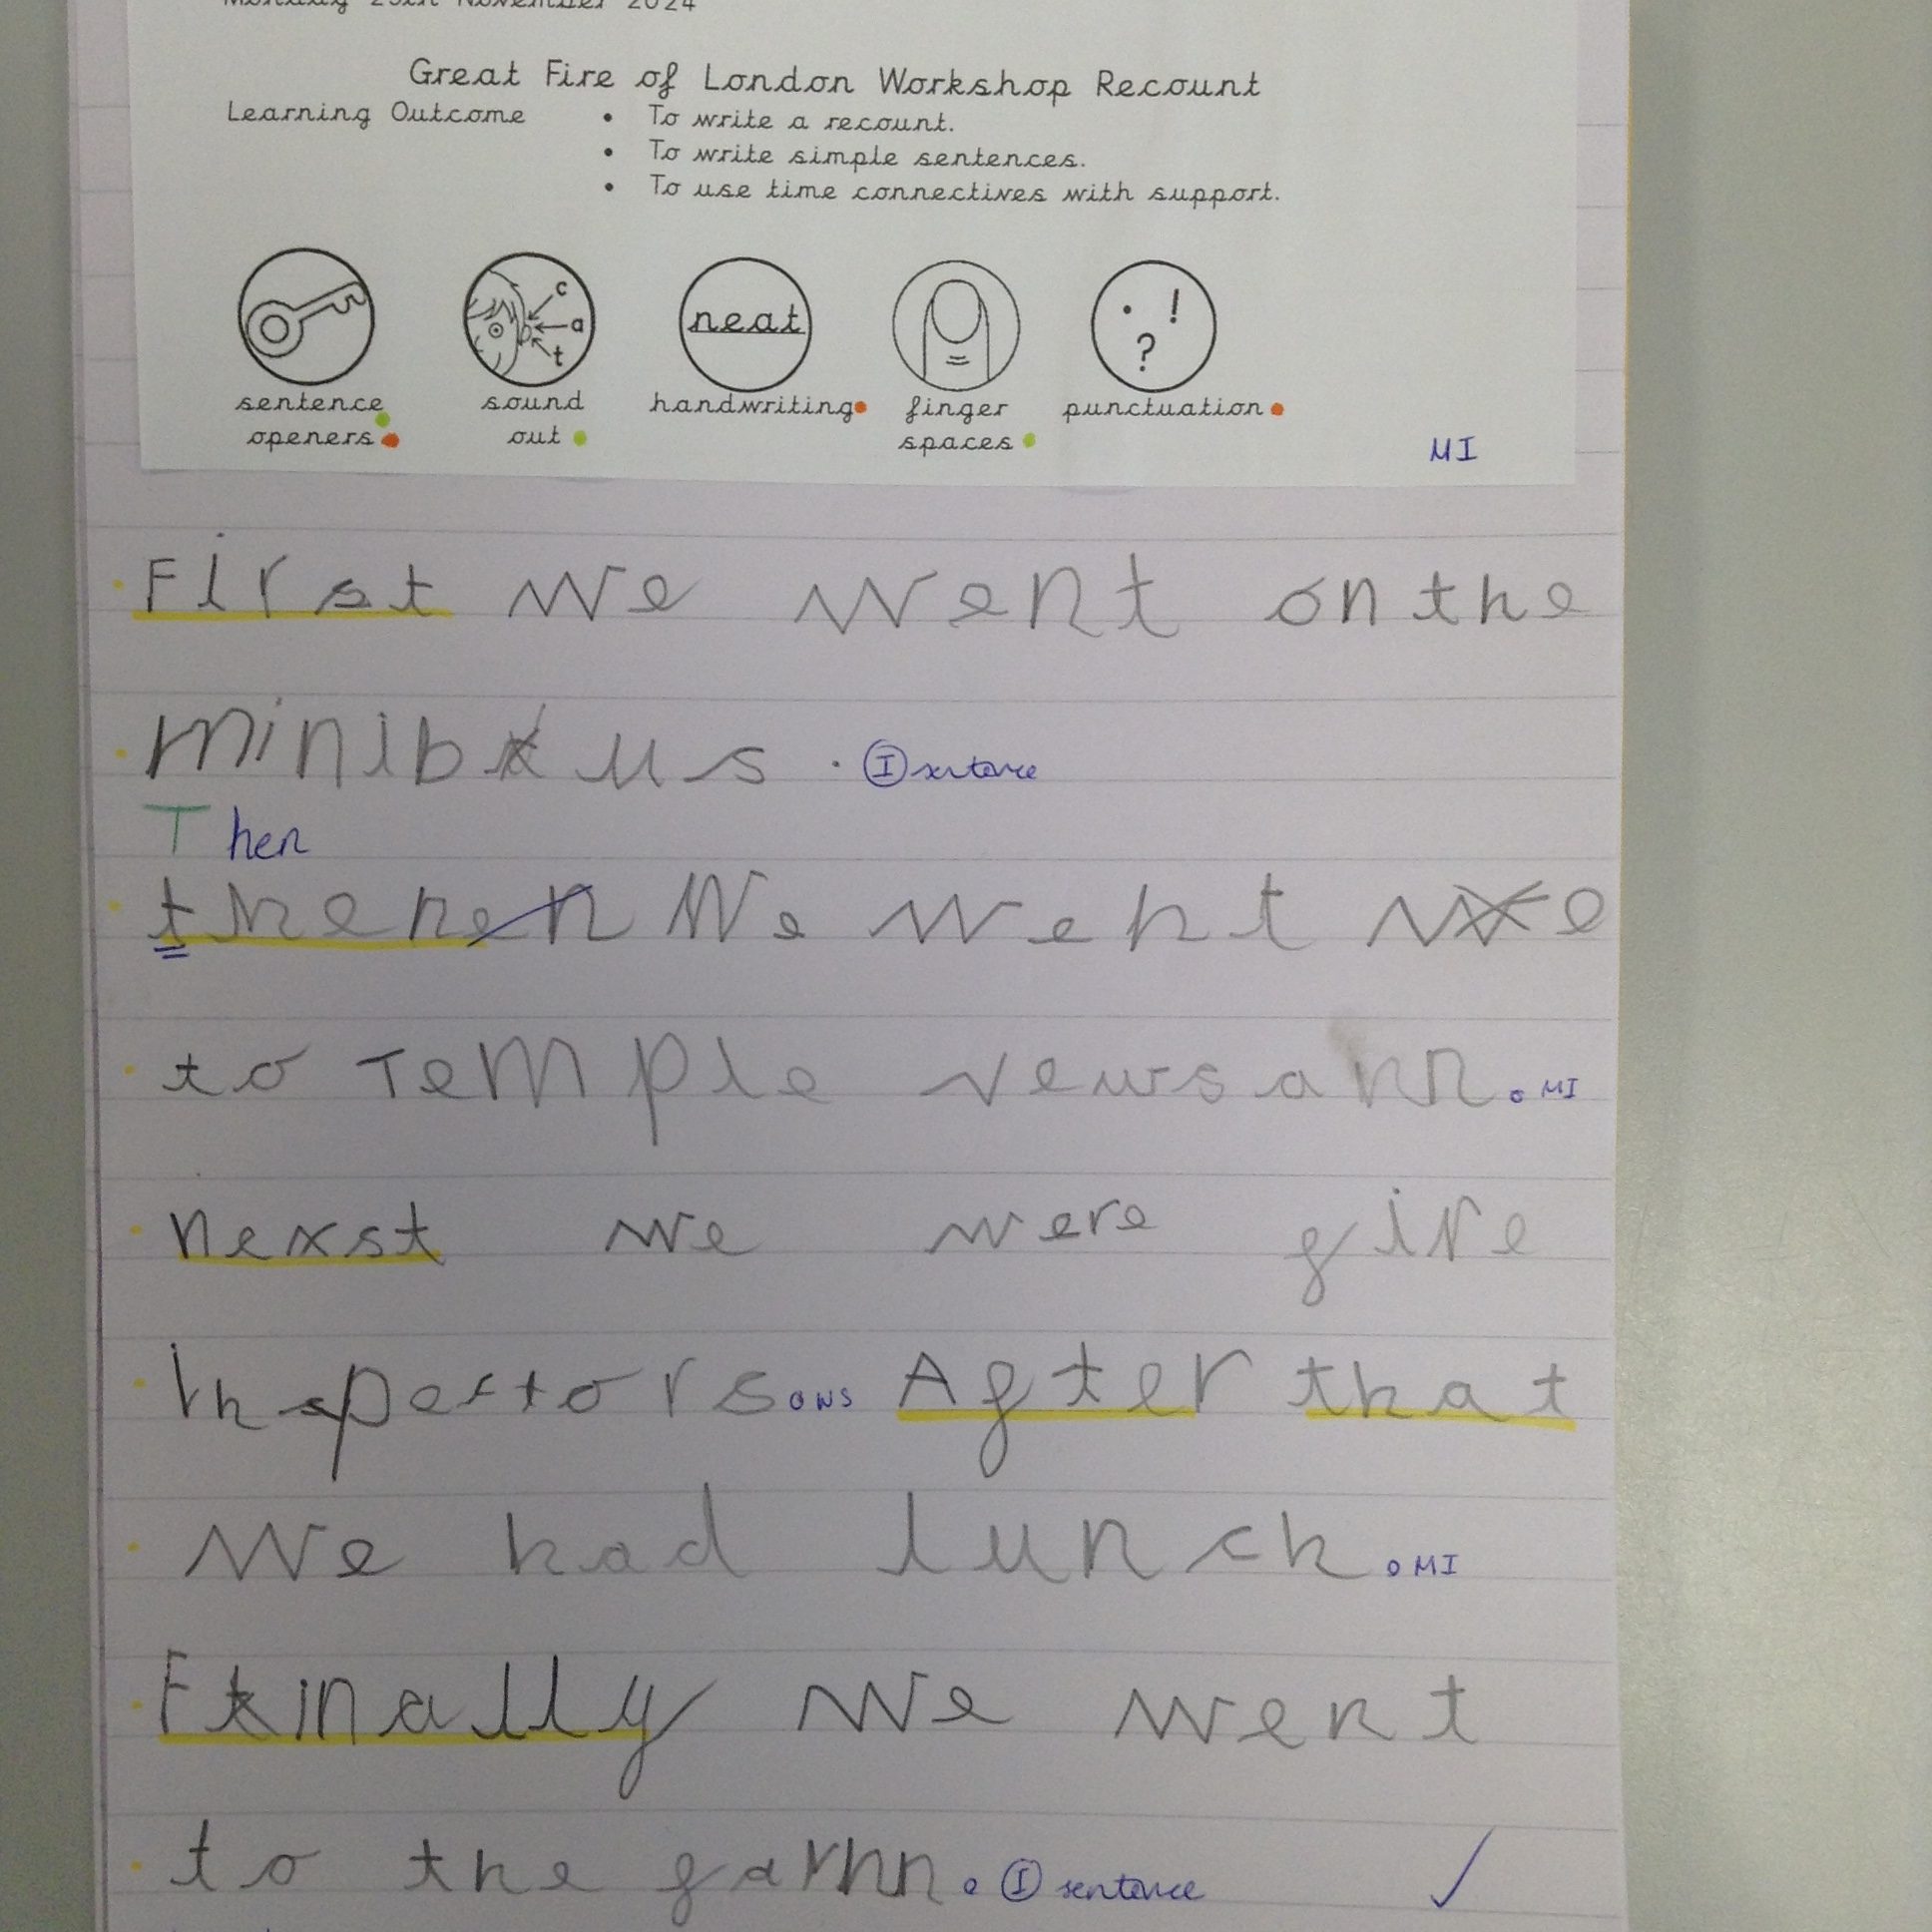 Monday 25th November 2024
Great Fire of London Workshop Recount
Learning Outcome
• To write a recount.
• To write simple sentences.
• To use time connectives with support.
neat
c
a
t
. ! ?
sentence openers
sound out
handwriting
finger spaces
punctuation
MI
First we went on the
minibus . Ⓘ sentence
Then
thenen we went e
to Temple vewsann. MI
nexst we were give
inspectors. ws After that
we had lunch. MI
Finally we went
to the garnn. Ⓘ sentence ✓